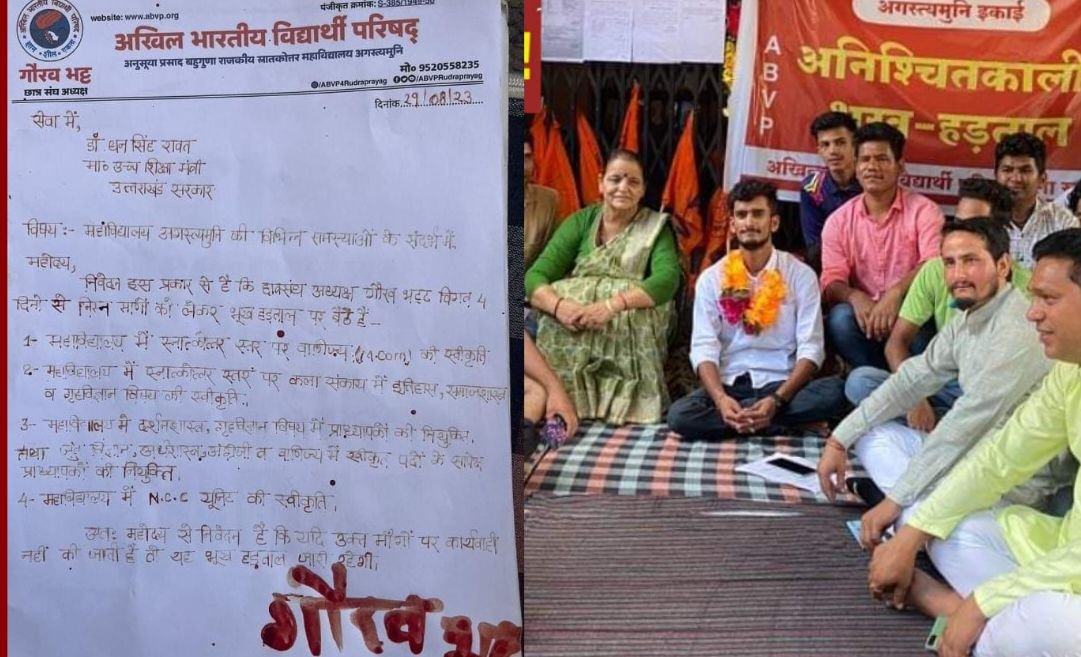 website: www.abvp.org
पंजीकृत क्रमांक: S-385/1949-50
अखिल भारतीय विद्यार्थी परिषद्
अनुसूया प्रसाद बहुगुणा राजकीय स्नातकोत्तर महाविद्यालय अगस्त्यमुनि
गौरव भट्ट
छात्र संघ अध्यक्ष
मो० 9520558235
/ABVP4Rudraprayag /ABVPRudraprayag
दिनांक 29/08/23
सेवा में,
डॉ धन सिंह रावत
मा० उच्च शिक्षा मंत्री
उत्तराखंड सरकार
विषय :- महाविद्यालय अगस्त्यमुनि की विभिन्न समस्याओं के संदर्भ में.
महोदय,
निवेदन इस प्रकार से है कि छात्रसंघ अध्यक्ष गौरव भट्ट विगत 4
दिनों से निम्न मांगों को लेकर भूख हड़ताल पर बैठे हैं -
1- महाविद्यालय में स्नातकोत्तर स्तर पर वाणिज्य की स्वीकृति
2- महाविद्यालय में स्नातकोत्तर स्तर पर कला संकाय में इतिहास, समाजशास्त्र
व गृहविज्ञान विषय की स्वीकृति.
3- महाविद्यालय में दर्शनशास्त्र, गृहविज्ञान विषय में प्राध्यापकों की नियुक्ति.
तथा अर्थशास्त्र, अंग्रेजी व वाणिज्य में स्वीकृत पदों के सापेक्ष
प्राध्यापकों की नियुक्ति.
4- महाविद्यालय में N.C.C यूनिट की स्वीकृति.
अतः महोदय से निवेदन है कि यदि उक्त माँगों पर कार्यवाही
नहीं की जाती है तो यह भूख हड़ताल जारी रहेगी।
गौरव भट्ट
अगस्त्यमुनि इकाई
ABVP
अनिश्चितकाली
भूख-हड़ताल